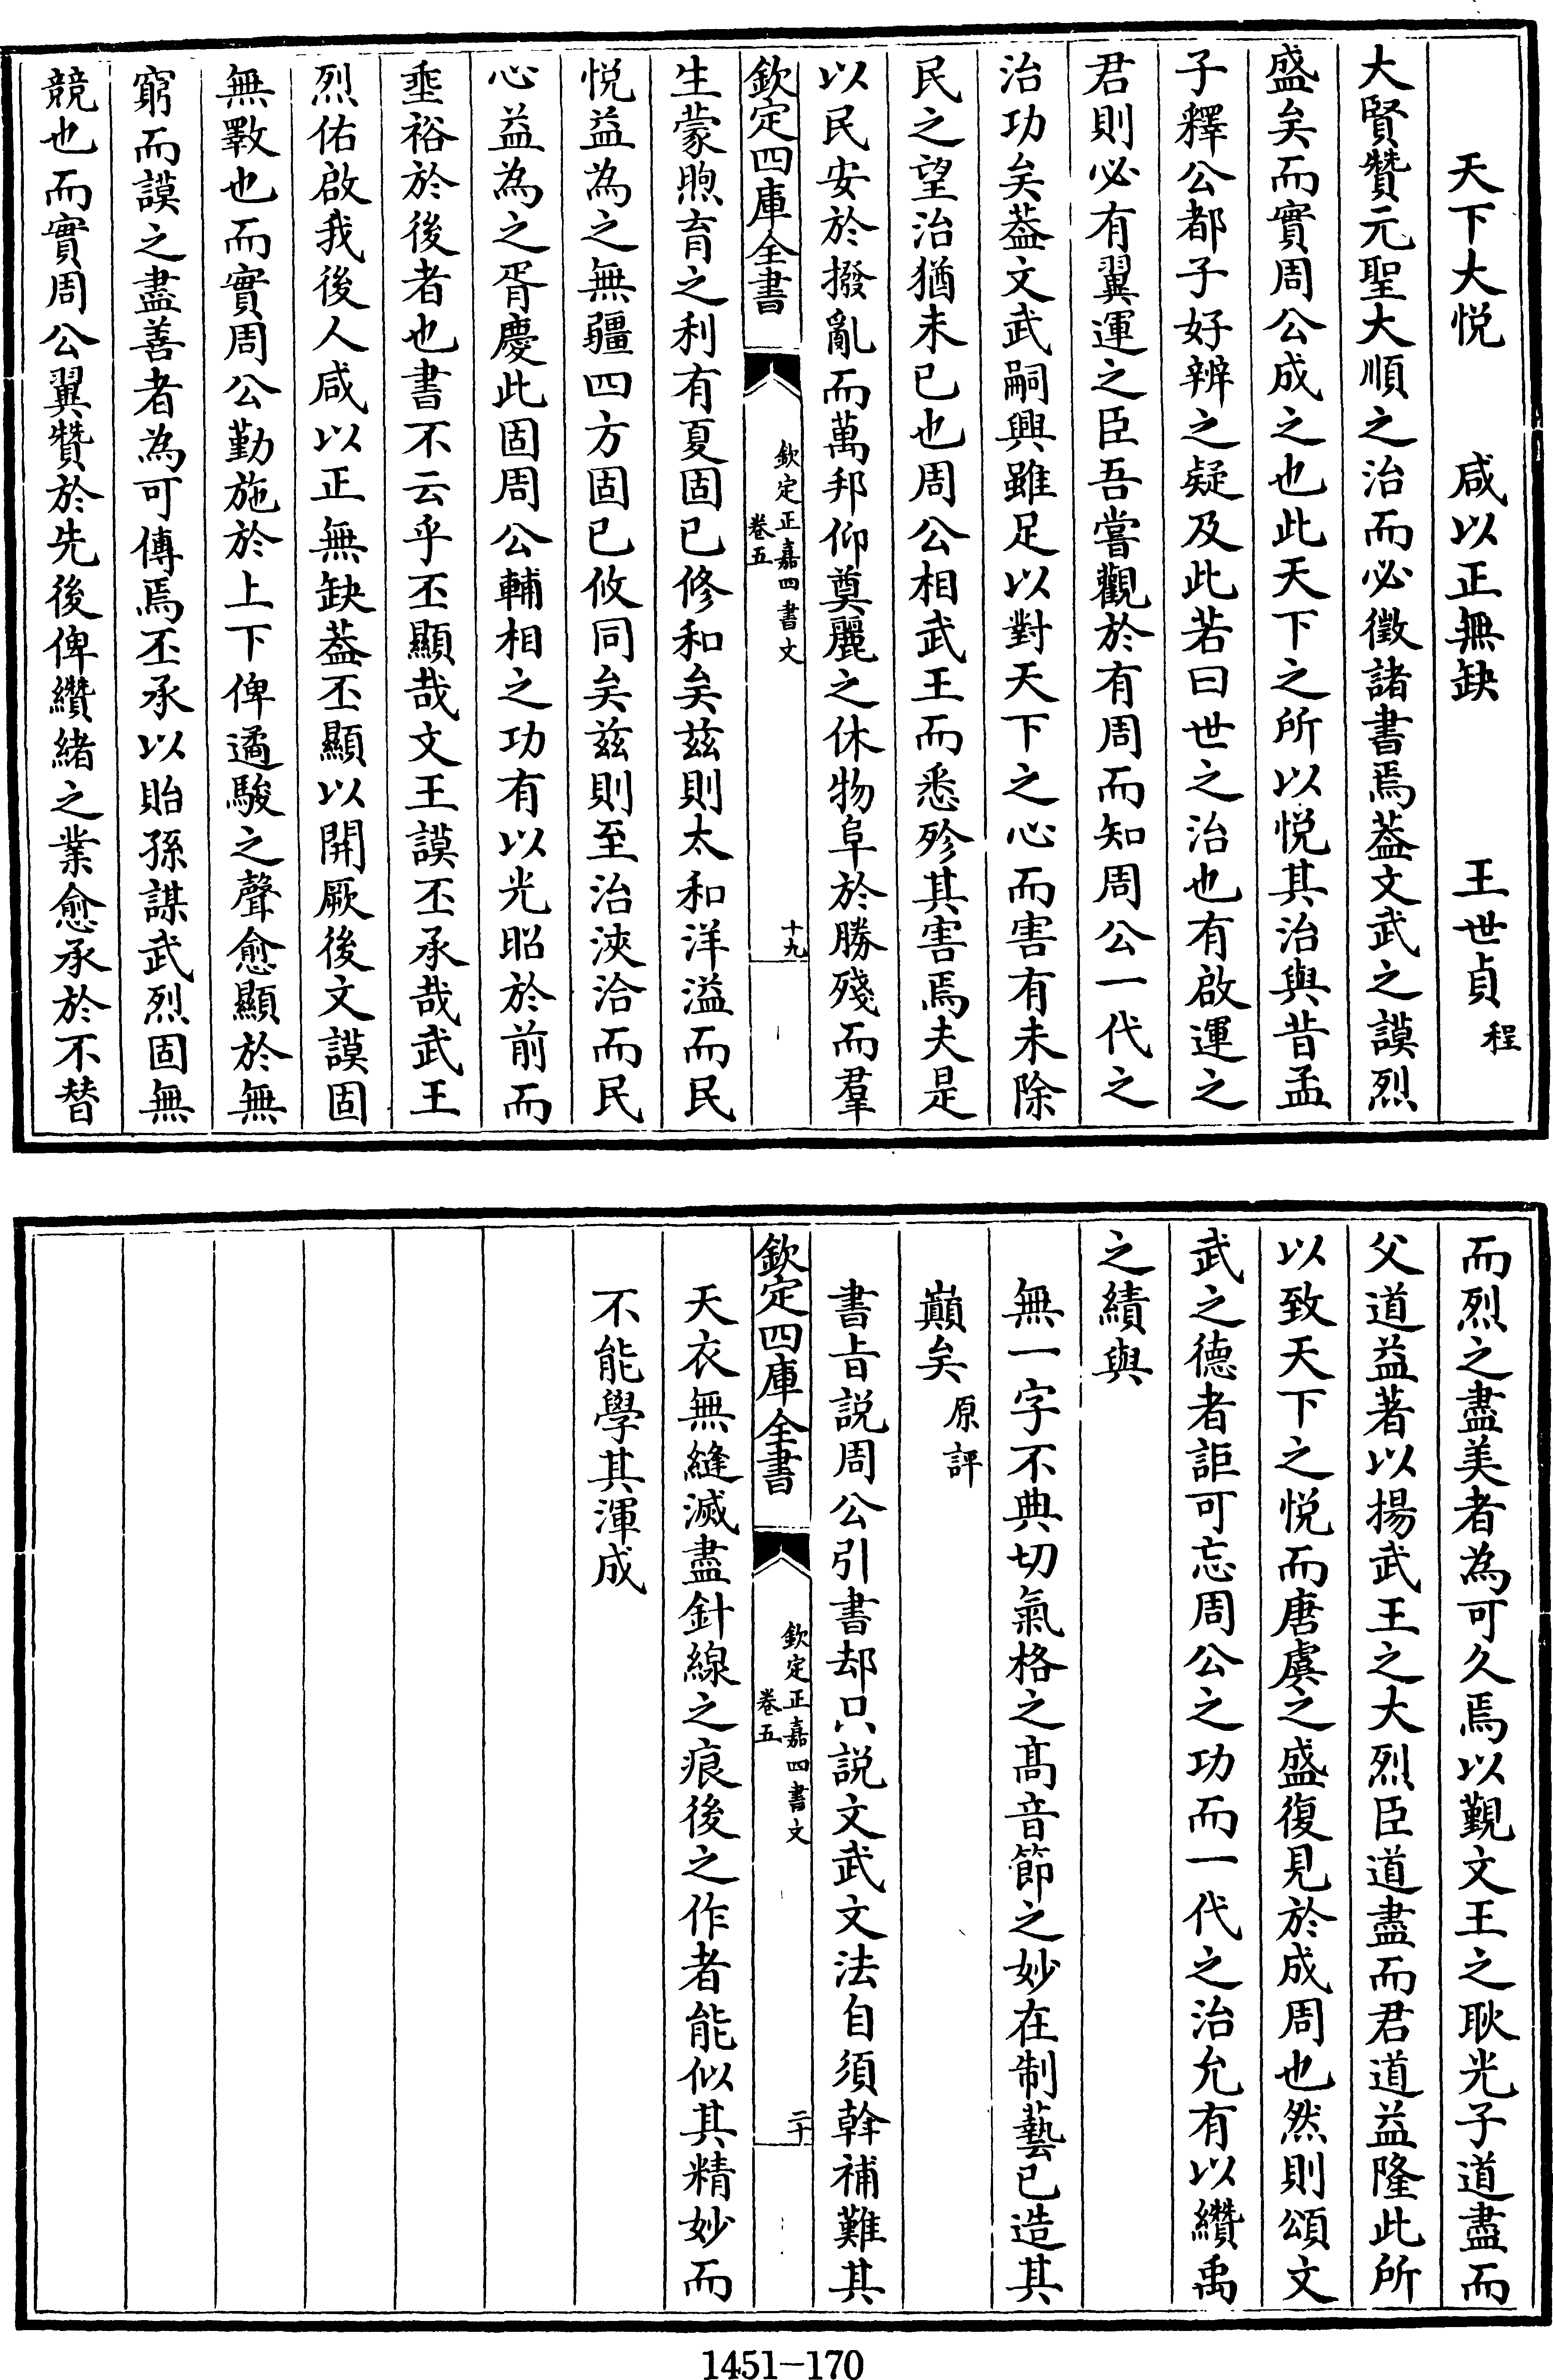 天下大悦　咸以正無缺　王世貞　程
大賢贊元聖大順之治而必徵諸書焉葢文武之謨烈
盛矣而實周公成之也此天下之所以悦其治與昔孟
子釋公都子好辨之疑及此若曰世之治也有啟運之
君則必有翼運之臣吾嘗觀於有周而知周公一代之
治功矣葢文武嗣興雖足以對天下之心而害有未除
民之望治猶未已也周公相武王而悉殄其害焉夫是
以民安於撥亂而萬邦仰奠麗之休物阜於勝殘而羣
欽定四庫全書
欽定正嘉四書文
卷五
十九
生蒙煦育之利有夏固已修和矣兹則太和洋溢而民
悦益為之無疆四方固已攸同矣兹則至治浹洽而民
心益為之胥慶此固周公輔相之功有以光昭於前而
垂裕於後者也書不云乎丕顯哉文王謨丕承哉武王
烈佑啟我後人咸以正無缺葢丕顯以開厥後文謨固
無斁也而實周公勤施於上下俾遹駿之聲愈顯於無
窮而謨之盡善者為可傳焉丕承以貽孫謀武烈固無
競也而實周公翼贊於先後俾纘緒之業愈承於不替
而烈之盡美者為可久焉以覲文王之耿光子道盡而
父道益著以揚武王之大烈臣道盡而君道益隆此所
以致天下之悦而唐虞之盛復見於成周也然則頌文
武之德者詎可忘周公之功而一代之治允有以纘禹
之績與
無一字不典切氣格之髙音節之妙在制藝已造其
巔矣原評
書旨説周公引書却只説文武文法自須斡補難其
欽定四庫全書
欽定正嘉四書文
卷五
二十
天衣無縫滅盡針線之痕後之作者能似其精妙而
不能學其渾成
1451-170